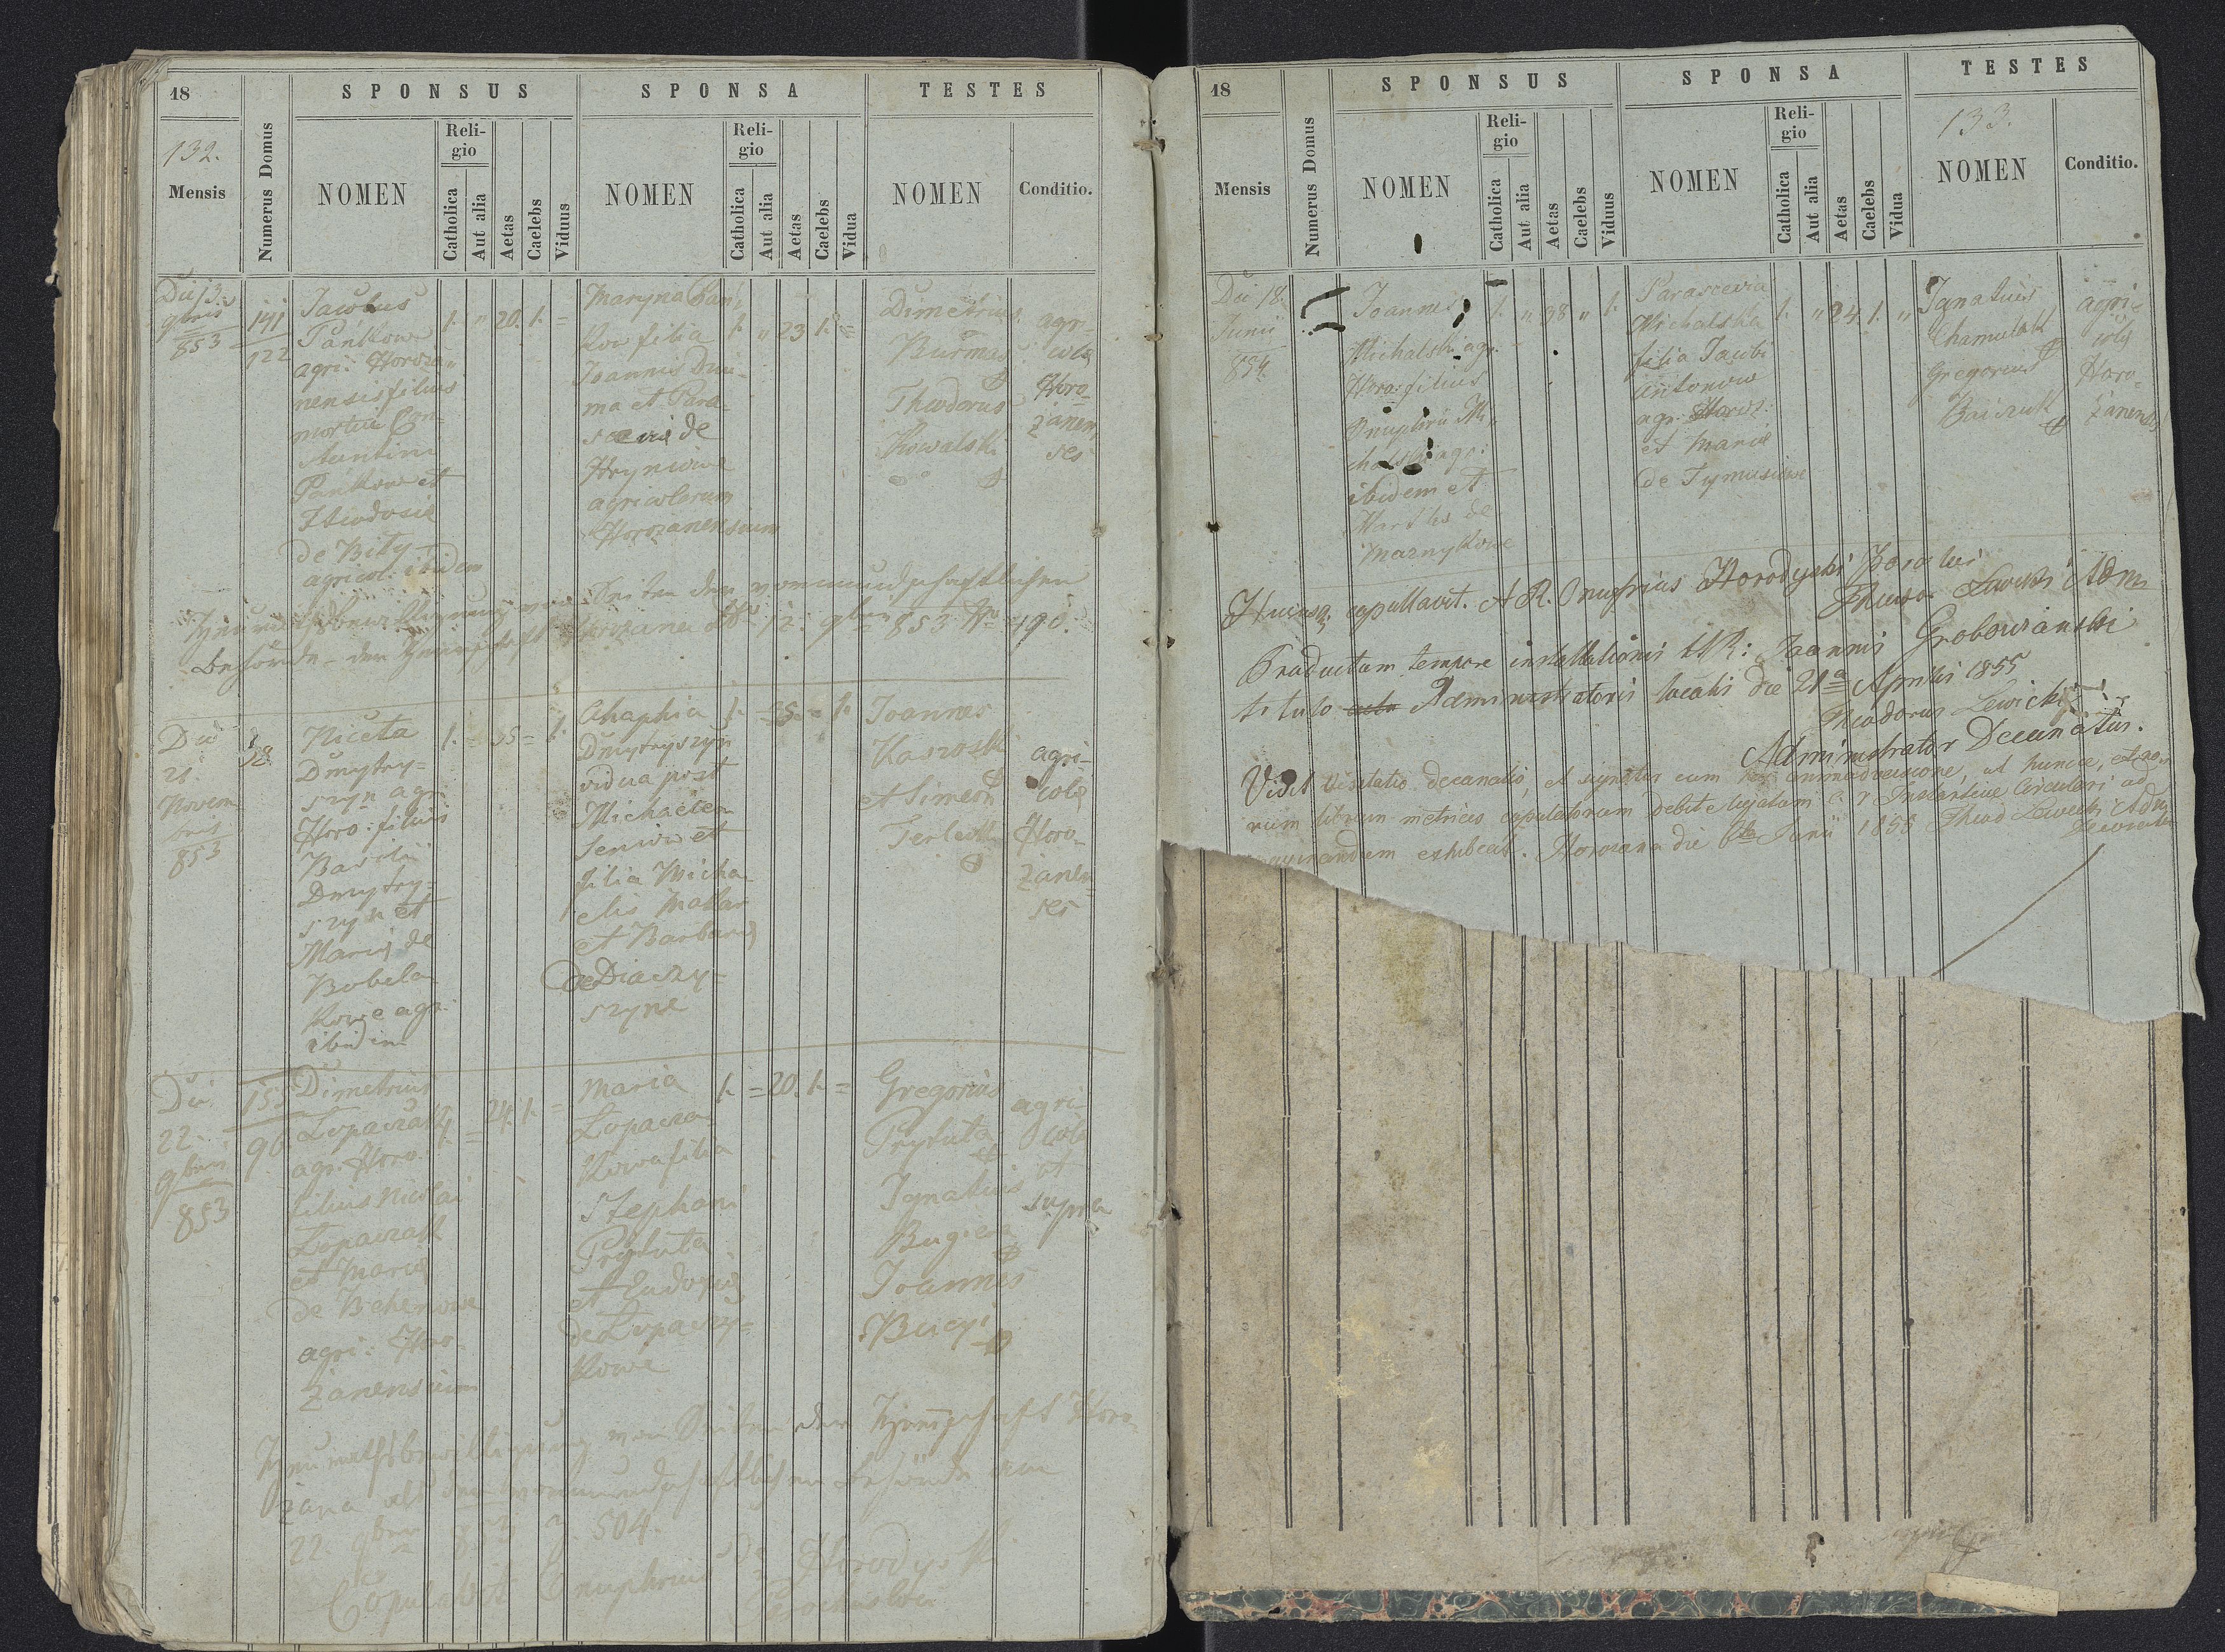 18
SPONSUS
SPONSA
TESTES
132.
Mensis
Numerus Domus
NOMEN
Religio
Catholica
Aut alia
Aetas
Caelebs
Viduus
NOMEN
Religio
Catholica
Aut alia
Aetas
Caelebs
Vidua
NOMEN
Conditio.
Die 13.
9bris
853
141
122
Jacobus
Pańkow
agri: Horoża-
nensis filius
mortui Con-
stantini
Pańkow et
Theodosiae
de Bity
agricol: ibidem
1. " 20. 1. =
Maryna
filia
Joannis Dmi-
ma et Para-
sceviae de
Hryniowe
agricolarum
Horożanensium
1. " 23 1. =
Dimetrius
Burmas
Theodorus
Kowalski
agri-
colae
Horo-
żanen-
ses
Heurathsbewilligung von Seiten der vormundschaftlichen
Behörde - der Herrschaft Horożana dto 12. 9bris 853 No 490.
Die
21.
Novem
bris
853
Niceta
Dmytry-
szyn agr.
Horo: filius
Basilii
Dmytry-
szyn et
Mariae de
Bobela
Kowe agr.
ibidem
1. = 35 = 1.
Ahaphia
Dmytryszyn
vidua post
Michaelem
Seniow et
filia Micha
elis Makar
et Barbarae
de Diaczy-
szyne
1. = 35 = 1.
Joannes
et Simeon
Terlecki
agri-
colae
Horo-
żanen-
ses
Die
22.
9bris
853
155
96
Dimetrius
Łopaczak
agr. Horo.
filius Nicolai
Łopaczak
et Mariae
de Behenowe
agri: Horo-
żanensium
1. = 24. 1. =
Maria
Łopacza-
kowa filia
Stephani
Pryłuta
et Eudoxiae
de Łopaczy-
kowe
1. = 20. 1. =
Gregorius
Pryłuta
Ignatius
Bugiera
Joannes
agri-
colae
ut
supra
Heurathsbewilligung von Seiten der Herrschaft Horo-
żana als der vormundschaftlichen Behörde vom
22. 9bris 853 z. 504.
Copulavit Onuphrius Horodyski
Parochus loci
18
SPONSUS
SPONSA
TESTES
133.
Mensis
Numerus Domus
NOMEN
Religio
Catholica
Aut alia
Aetas
Caelebs
Viduus
NOMEN
Religio
Catholica
Aut alia
Aetas
Caelebs
Vidua
NOMEN
Conditio.
Die 18.
Junii
854.
Joannes
Michalski agr.
Horo: filius
Onuphrii Mi-
chalski agr:
ibidem et
Marthae de
Maznykowe
1. " 38 " 1.
Parascevia
Michalska
filia Jacobi
Antonow
agr: Horoż:
et Mariae
de Tymusiowe
1. " 24 1. "
Ignatius
Chamulak
Gregorius
agri-
colae
Horo-
żanenses
Hucusq; copullavit. A R. Onufrius Horodyski
Theodor Lewicki Adm
Traductum tempore installationis AR: Joannis Grobowianski
titulo Administratoris localis die 21a Aprilis 1855
Theodorus Lewicki
Administrator Decanatus.
Vidit visitatio decanalis, et signatur cum animadversione, ut huncce, et
rum librum metrices copulatorum debite legatum Circulari ad
exhibeat. Horożana die Junii 1858 Theod Lewicki Adm